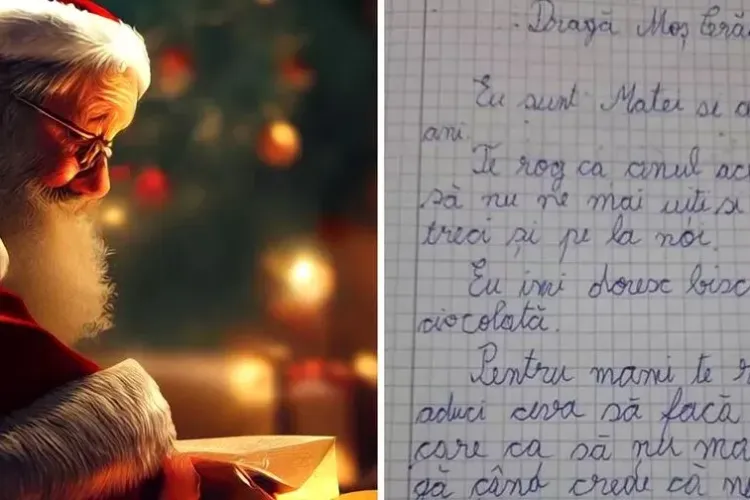 Dragă Moș Cră
Eu sunt Matei si
ani.
Te rog ca anul ac
să nu ne mai uiti si
treci și pe la noi.
Eu imi doresc bisc
ciocolată.
Pentru mami te r
aduci ceva să facă
care ca să nu ma
gă când crede că n